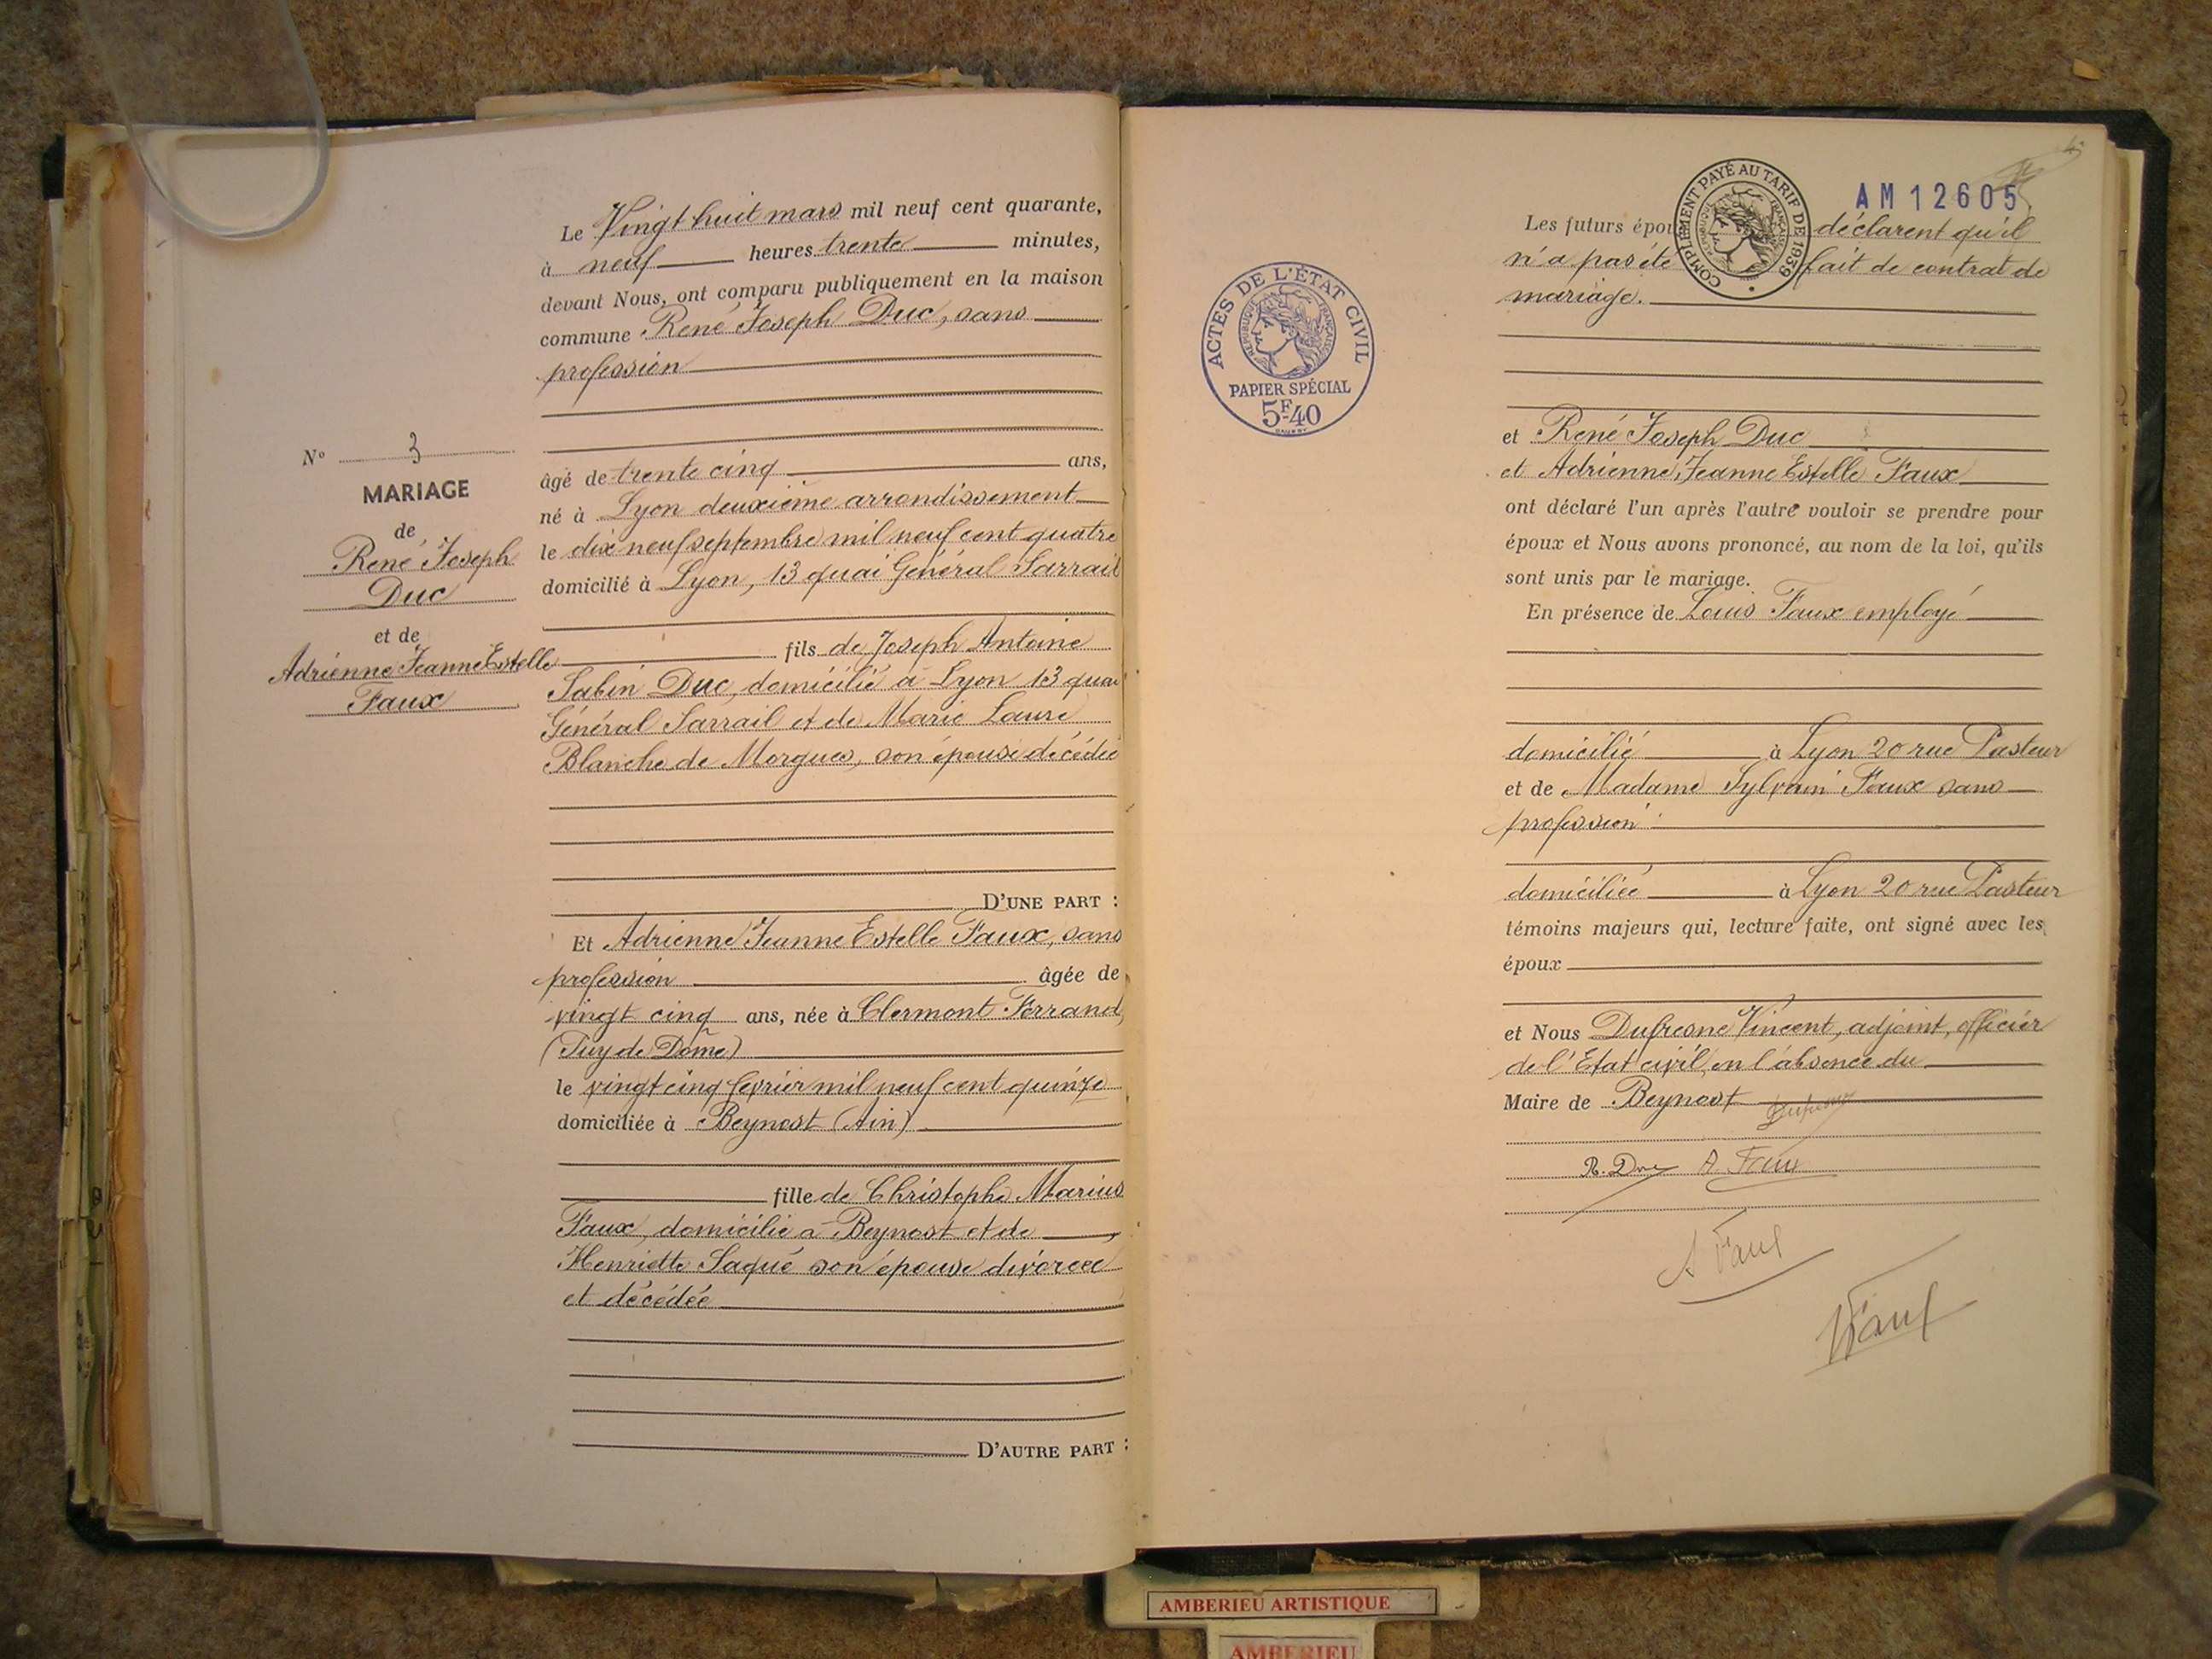 Le Vingt huit mars mil neuf cent quarante,
à neuf heures trente minutes,
devant Nous, ont comparu publiquement en la maison
commune René Joseph Duc, sans
profession
N° 3
MARIAGE
de
René Joseph
Duc
et de
Adrienne Jeanne Estelle
Faux
âgé de trente cinq ans,
né à Lyon deuxième arrondissement
le dix neuf septembre mil neuf cent quatre
domicilié à Lyon, 13 quai Général Sarrail
fils de Joseph Antoine
Sabin Duc, domicilié à Lyon 13 quai
Général Sarrail et de Marie Laure
Blanche de Morgues, son épouse décédée
D'UNE PART :
Et Adrienne Jeanne Estelle Faux, sans
profession âgée de
vingt cinq ans, née à Clermont Ferrand,
(Puy de Dôme)
le vingt cinq février mil neuf cent quinze
domiciliée à Beynost (Ain)
fille de Christophe Marius
Faux, domicilié à Beynost et de
Henriette Saqué son épouse divorcée
et décédée
D'AUTRE PART :
AM 12605
COMPLÉMENT PAYÉ AU TARIF DE 1939
RÉPUBLIQUE FRANÇAISE
ACTES DE L'ÉTAT CIVIL
RÉPUBLIQUE FRANÇAISE
PAPIER SPÉCIAL
5F40
Les futurs épou déclarent qu'il
n'a pas été fait de contrat de
mariage.
et René Joseph Duc
et Adrienne Jeanne Estelle Faux
ont déclaré l'un après l'autre vouloir se prendre pour
époux et Nous avons prononcé, au nom de la loi, qu'ils
sont unis par le mariage.
En présence de Louis Faux employé
domicilié à Lyon 20 rue Pasteur
et de Madame Sylvain Faux sans
profession
domiciliée à Lyon 20 rue Pasteur
témoins majeurs qui, lecture faite, ont signé avec les
époux
et Nous Dufresne Vincent, adjoint, officier
de l'Etat civil, en l'absence du
Maire de Beynost
Dufresne
R. Duc A. Faux
A Faux
Faux
AMBERIEU ARTISTIQUE
AMBERIEU